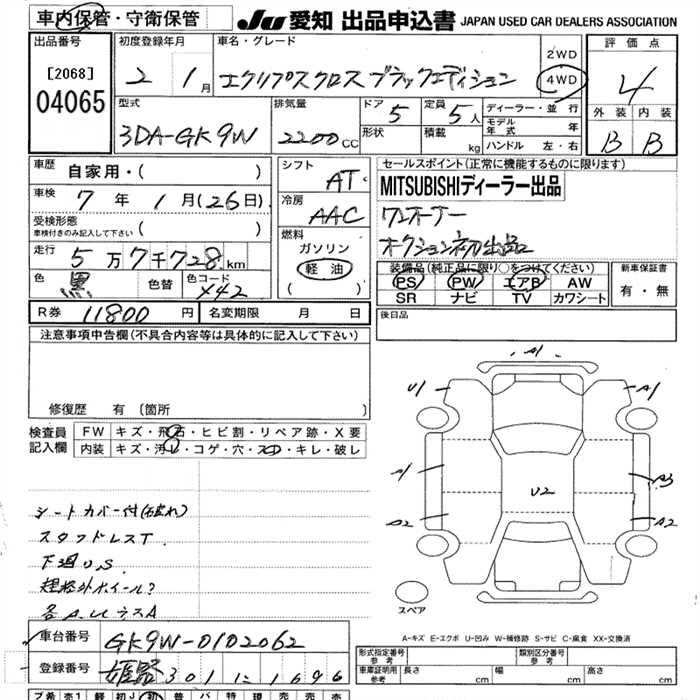 車内保管・守衛保管
JU 愛知 出品申込書 JAPAN USED CAR DEALERS ASSOCIATION
出品番号
[2068]
04065
初度登録年月
2 1月
車名・グレード
エクリプスクロス ブラックエディション
2WD
4WD
評価点
4
外装 内装
B B
型式
3DA-GK9W
排気量
2200 CC
ドア 5
定員 5人
形状
積載 kg
ディーラー・並行
モデル年式 年
ハンドル 左・右
車歴 自家用・( )
車検 7年 1月(26日)
受検形態
車検付きのみ記入して下さい ( )
走行 5万7千728km
色 黒 色替 色コード X42
シフト AT
冷房 AAC
燃料
ガソリン
軽油
( )
セールスポイント(正常に機能するものに限ります)
MITSUBISHIディーラー出品
ワンオーナー
オークション初出品
装備品(純正品に限り○をつけてください)
PS PW エアB AW
SR ナビ TV カワシート
新車保証書
有・無
R券 11800円
名変期限 月 日
後日品
注意事項申告欄(不具合内容等は具体的に記入して下さい)
修復歴 有 [箇所 ]
検査員記入欄
FW キズ・飛石・ヒビ割・リペア跡・X要
内装 キズ・汚レ・コゲ・穴・スレ・キレ・破レ
シートカバー付(破れ)
スタッドレスT
下廻り.S
規格外ホイール?
各A.Uキズ A
A1
U1
A1
A1
A3
U2
A2
A2
スペア
A-キズ E-エクボ U-凹み W-補修跡 S-サビ C-腐食 XX-交換済
車台番号 GK9W-0102062
登録番号 姫路 301 に 1696
形式指定番号 参考
類別区分番号 参考
車庫証明用 参考 長さ cm 幅 cm 高さ cm